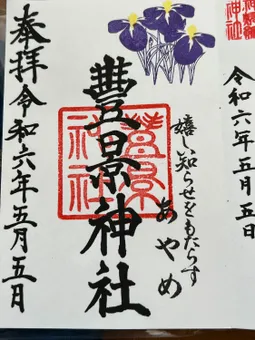 令和六年五月五日
嬉し知らせをもたらす
あやめ
豊景神社
豊景神社
奉拝令和六年五月五日